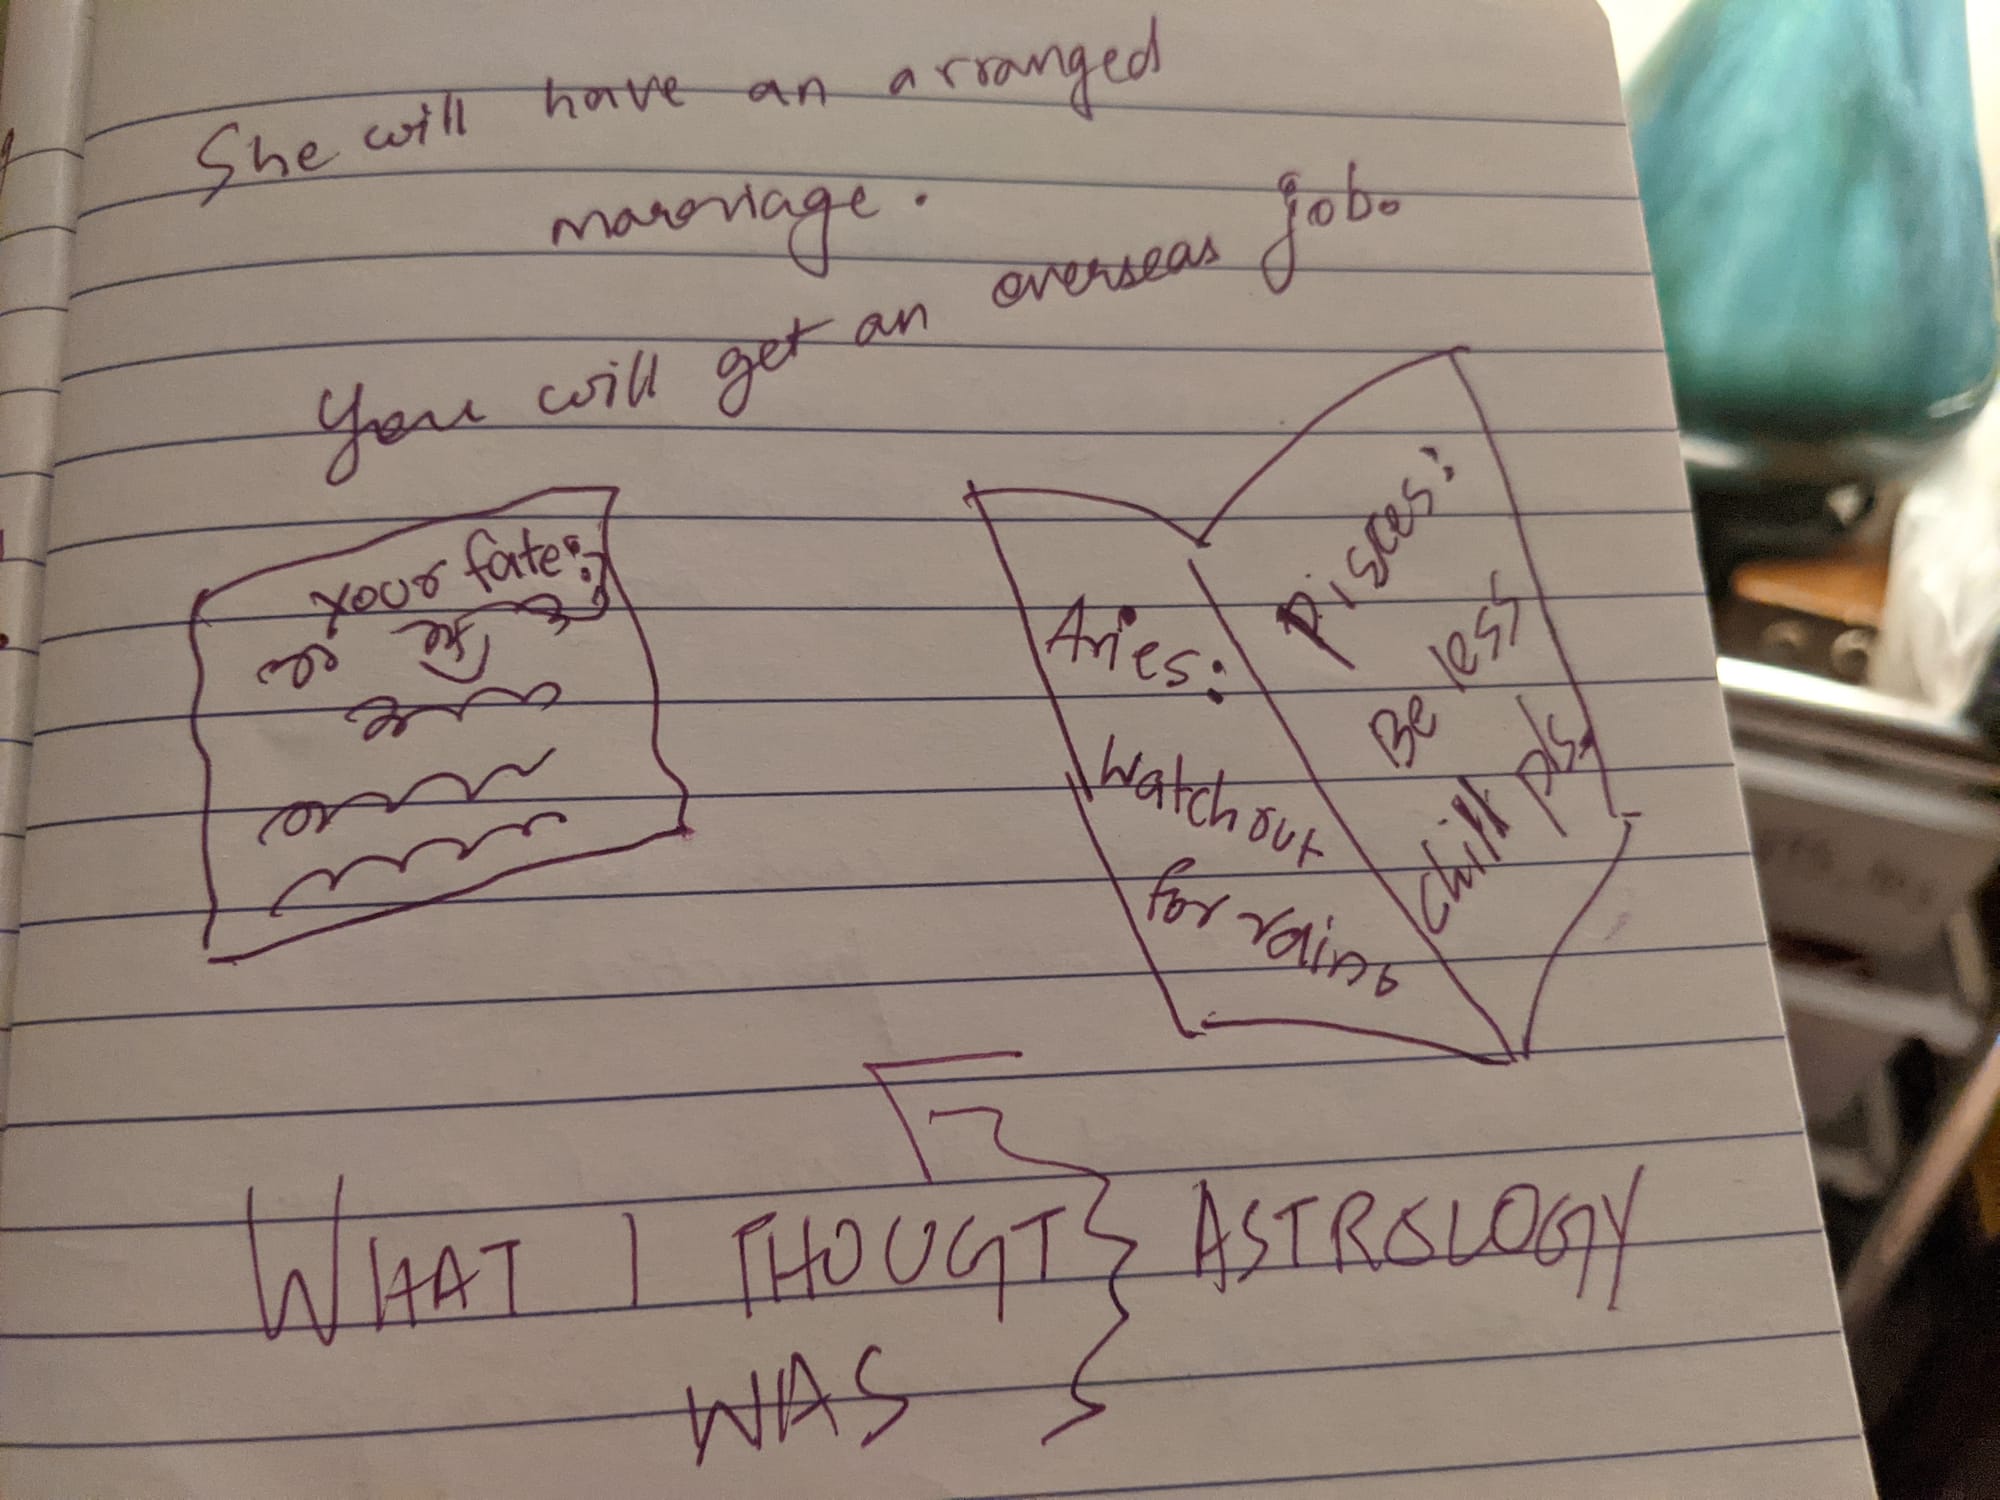 She will have an arranged
marriage.
You will get an overseas job.
Your fate:
Aries:
Watch out
for rain.
Pisces:
Be less
chill pls.
WHAT I THOUGT
WAS
ASTROLOGY